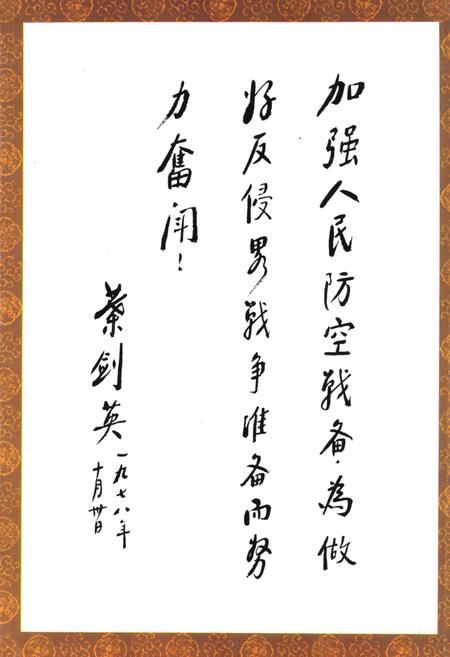 加强人民防空战备,为做
好反侵畧战争准备而努
力奋闘!
葉剑英
一九七八年
十月卅日